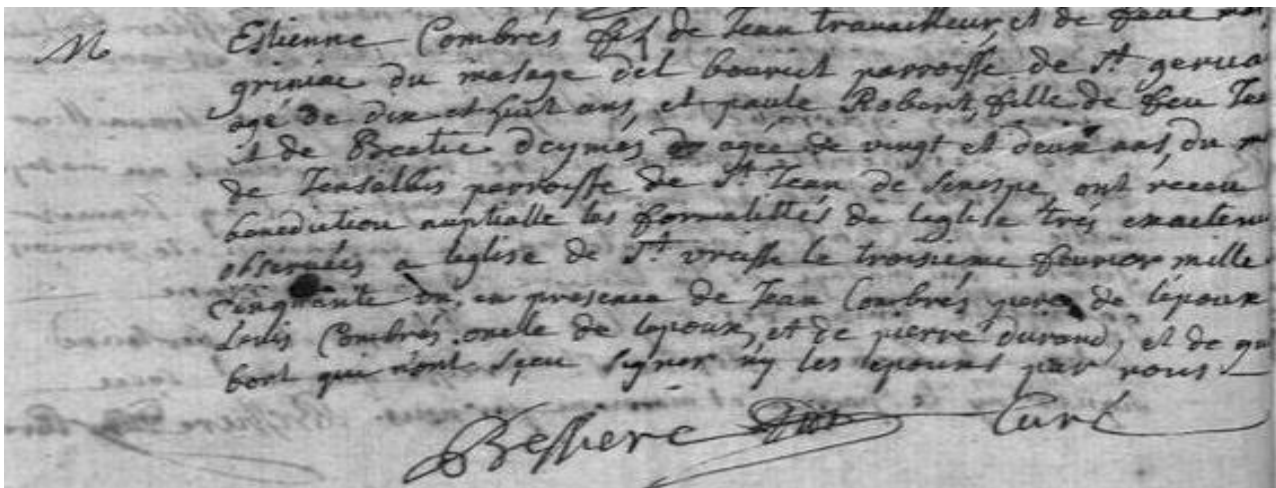 M
Estienne Combres fils de Jean travailleur, et de feue
griniac du masage del bourict parroisse de St gerua
agé de dix et huit ans, et paule Robert, fille de feu
et de Beatie Deymés agée de vingt et deux ans, du
de parroisse de St Jean de Senespe, ont receu
benediction nuptialle les formalittés de leglise trés exactem
observées a leglise de St vraisse le troisieme fevrier mille
cinquante un, en presence de Jean Combrés pere de lepoux
Louis Combrés oncle de lepoux, et de pierre durand, et de
bort qui n'ont sçeu signer ny les epouxs par nous
Bessiere Curé